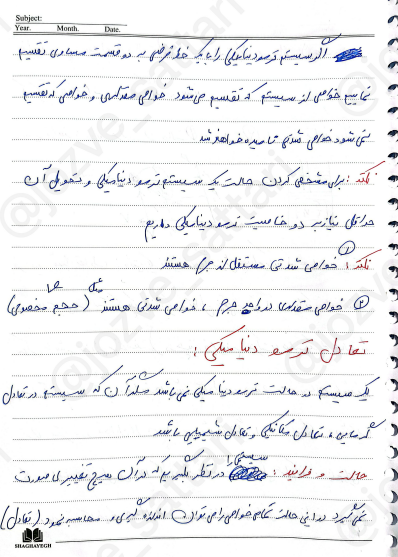 Subject:
Year. Month. Date.
اگر سیستم ترمودینامیکی را با یک خط فرضی به دو قسمت مساوی تقسیم
نماییم خواصی از سیستم که تقسیم می شود خواص مقداری و خواصی که تقسیم
نمی شود خواص شدتی نامیده خواهند شد
نکته: برای مشخص کردن حالت یک سیستم ترمودینامیکی و تحویل آن
حداقل نیاز به دو خاصیت ترمودینامیکی داریم
نکته: ① خواص شدتی مستقل از جرم هستند
② خواص مقداری در واحد جرم، خواص شدتی هستند (مثل حجم مخصوص)
تعادل ترمودینامیکی:
یک سیستم در حالت ترمودینامیکی نمی باشد مگر آن که سیستم در تعادل
گرمایی، تعادل مکانیکی و تعادل شیمیایی باشد
حالت و فرایند: سیستمی را در نظر بگیریم که در آن هیچ تغییری صورت
نمی گیرد در این حالت تمام خواص را می توان اندازه گیری و محاسبه نمود (تعادل)
SHAGHAYEGH
@jozve_sattari